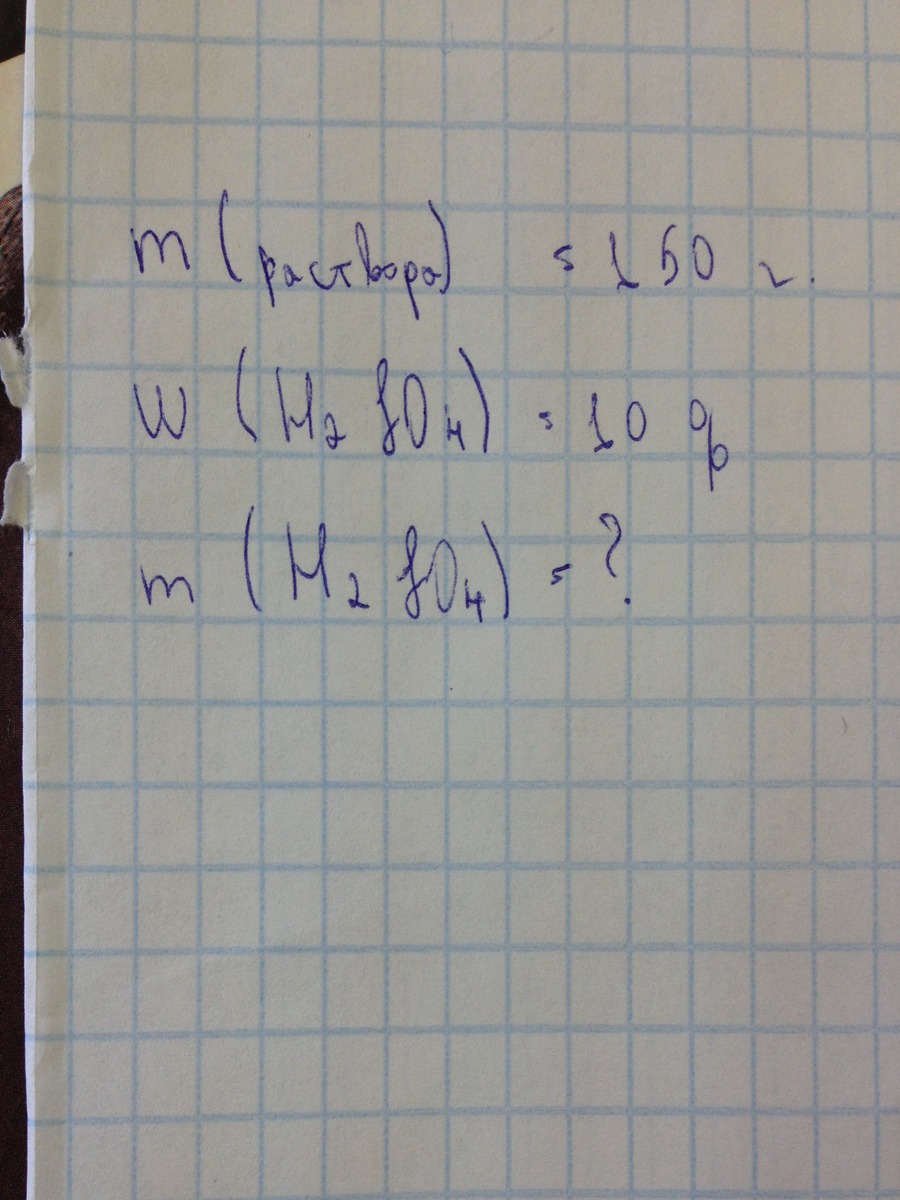 m (раствора) = 150 г.
w (H₂SO₄) = 10 %
m (H₂SO₄) = ?